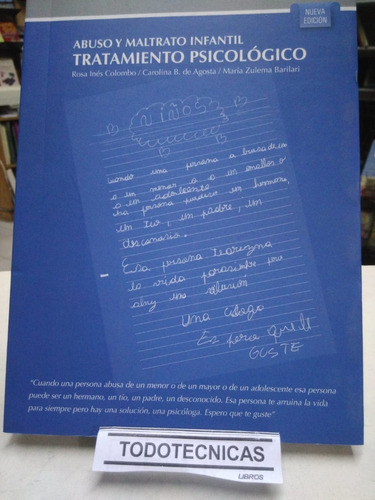 NUEVA
EDICIÓN
ABUSO Y MALTRATO INFANTIL
TRATAMIENTO PSICOLÓGICO
Rosa Inés Colombo / Carolina B. de Agosta / María Zulema Barilari
NIÑOS
Cuando una persona a busa de un
o un menor, o a o un mallor, o
a un adolecente
esa persona puede ser un hermano,
un tio, un padre, un
desconario.
Esa persona tearruina
la vida parasiempre pero
alny una solusión
Una cologa
Es pero que te
GUSTE
"Cuando una persona abusa de un menor o de un mayor o de un adolescente esa persona
puede ser un hermano, un tío, un padre, un desconocido. Esa persona te arruina la vida
para siempre pero hay una solución, una psicóloga. Espero que te guste"
TODOTECNICAS
LIBROS